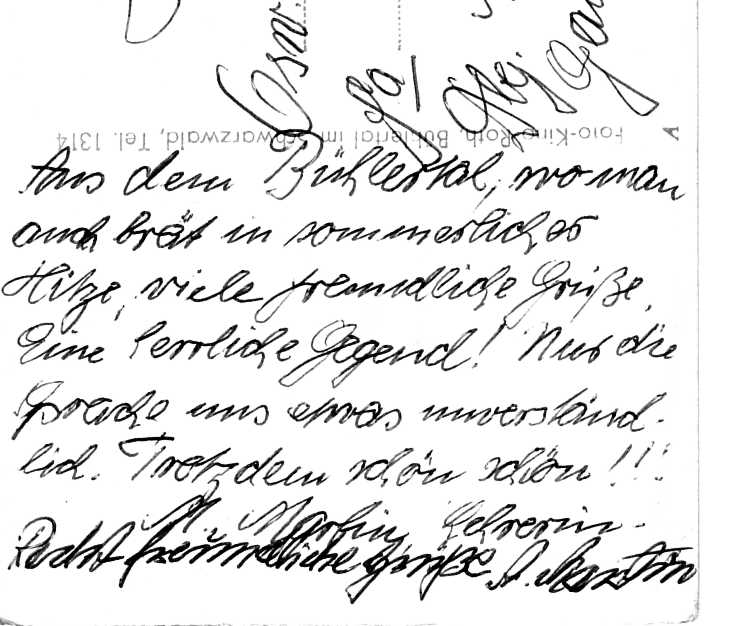 Osw.
Foto-Kino-Roth, Bühlertal im Schwarzwald, Tel. 1314
A
Aus dem Bühlertal, wo man
auch brät in sommerlicher
Hitze, viele freundliche Grüße,
Eine herrliche Gegend! Nur die
Sprache uns etwas unverständ-
lich. Trotzdem schön schön!!!
Martin, Lehrerin.
Recht freundliche Grüße A. Martin